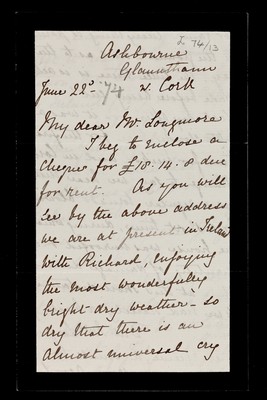 J. 74/13
Ashbourne
Glounthaun
June 22d 74 n. Cork
My dear Mr Longmore
I beg to enclose a
cheque for £18.14.8 due
for rent. As you will
see by the above address
we are at present in Ireland
with Richard, enjoying
the most wonderfully
bright dry weather - so
dry that there is an
almost universal cry